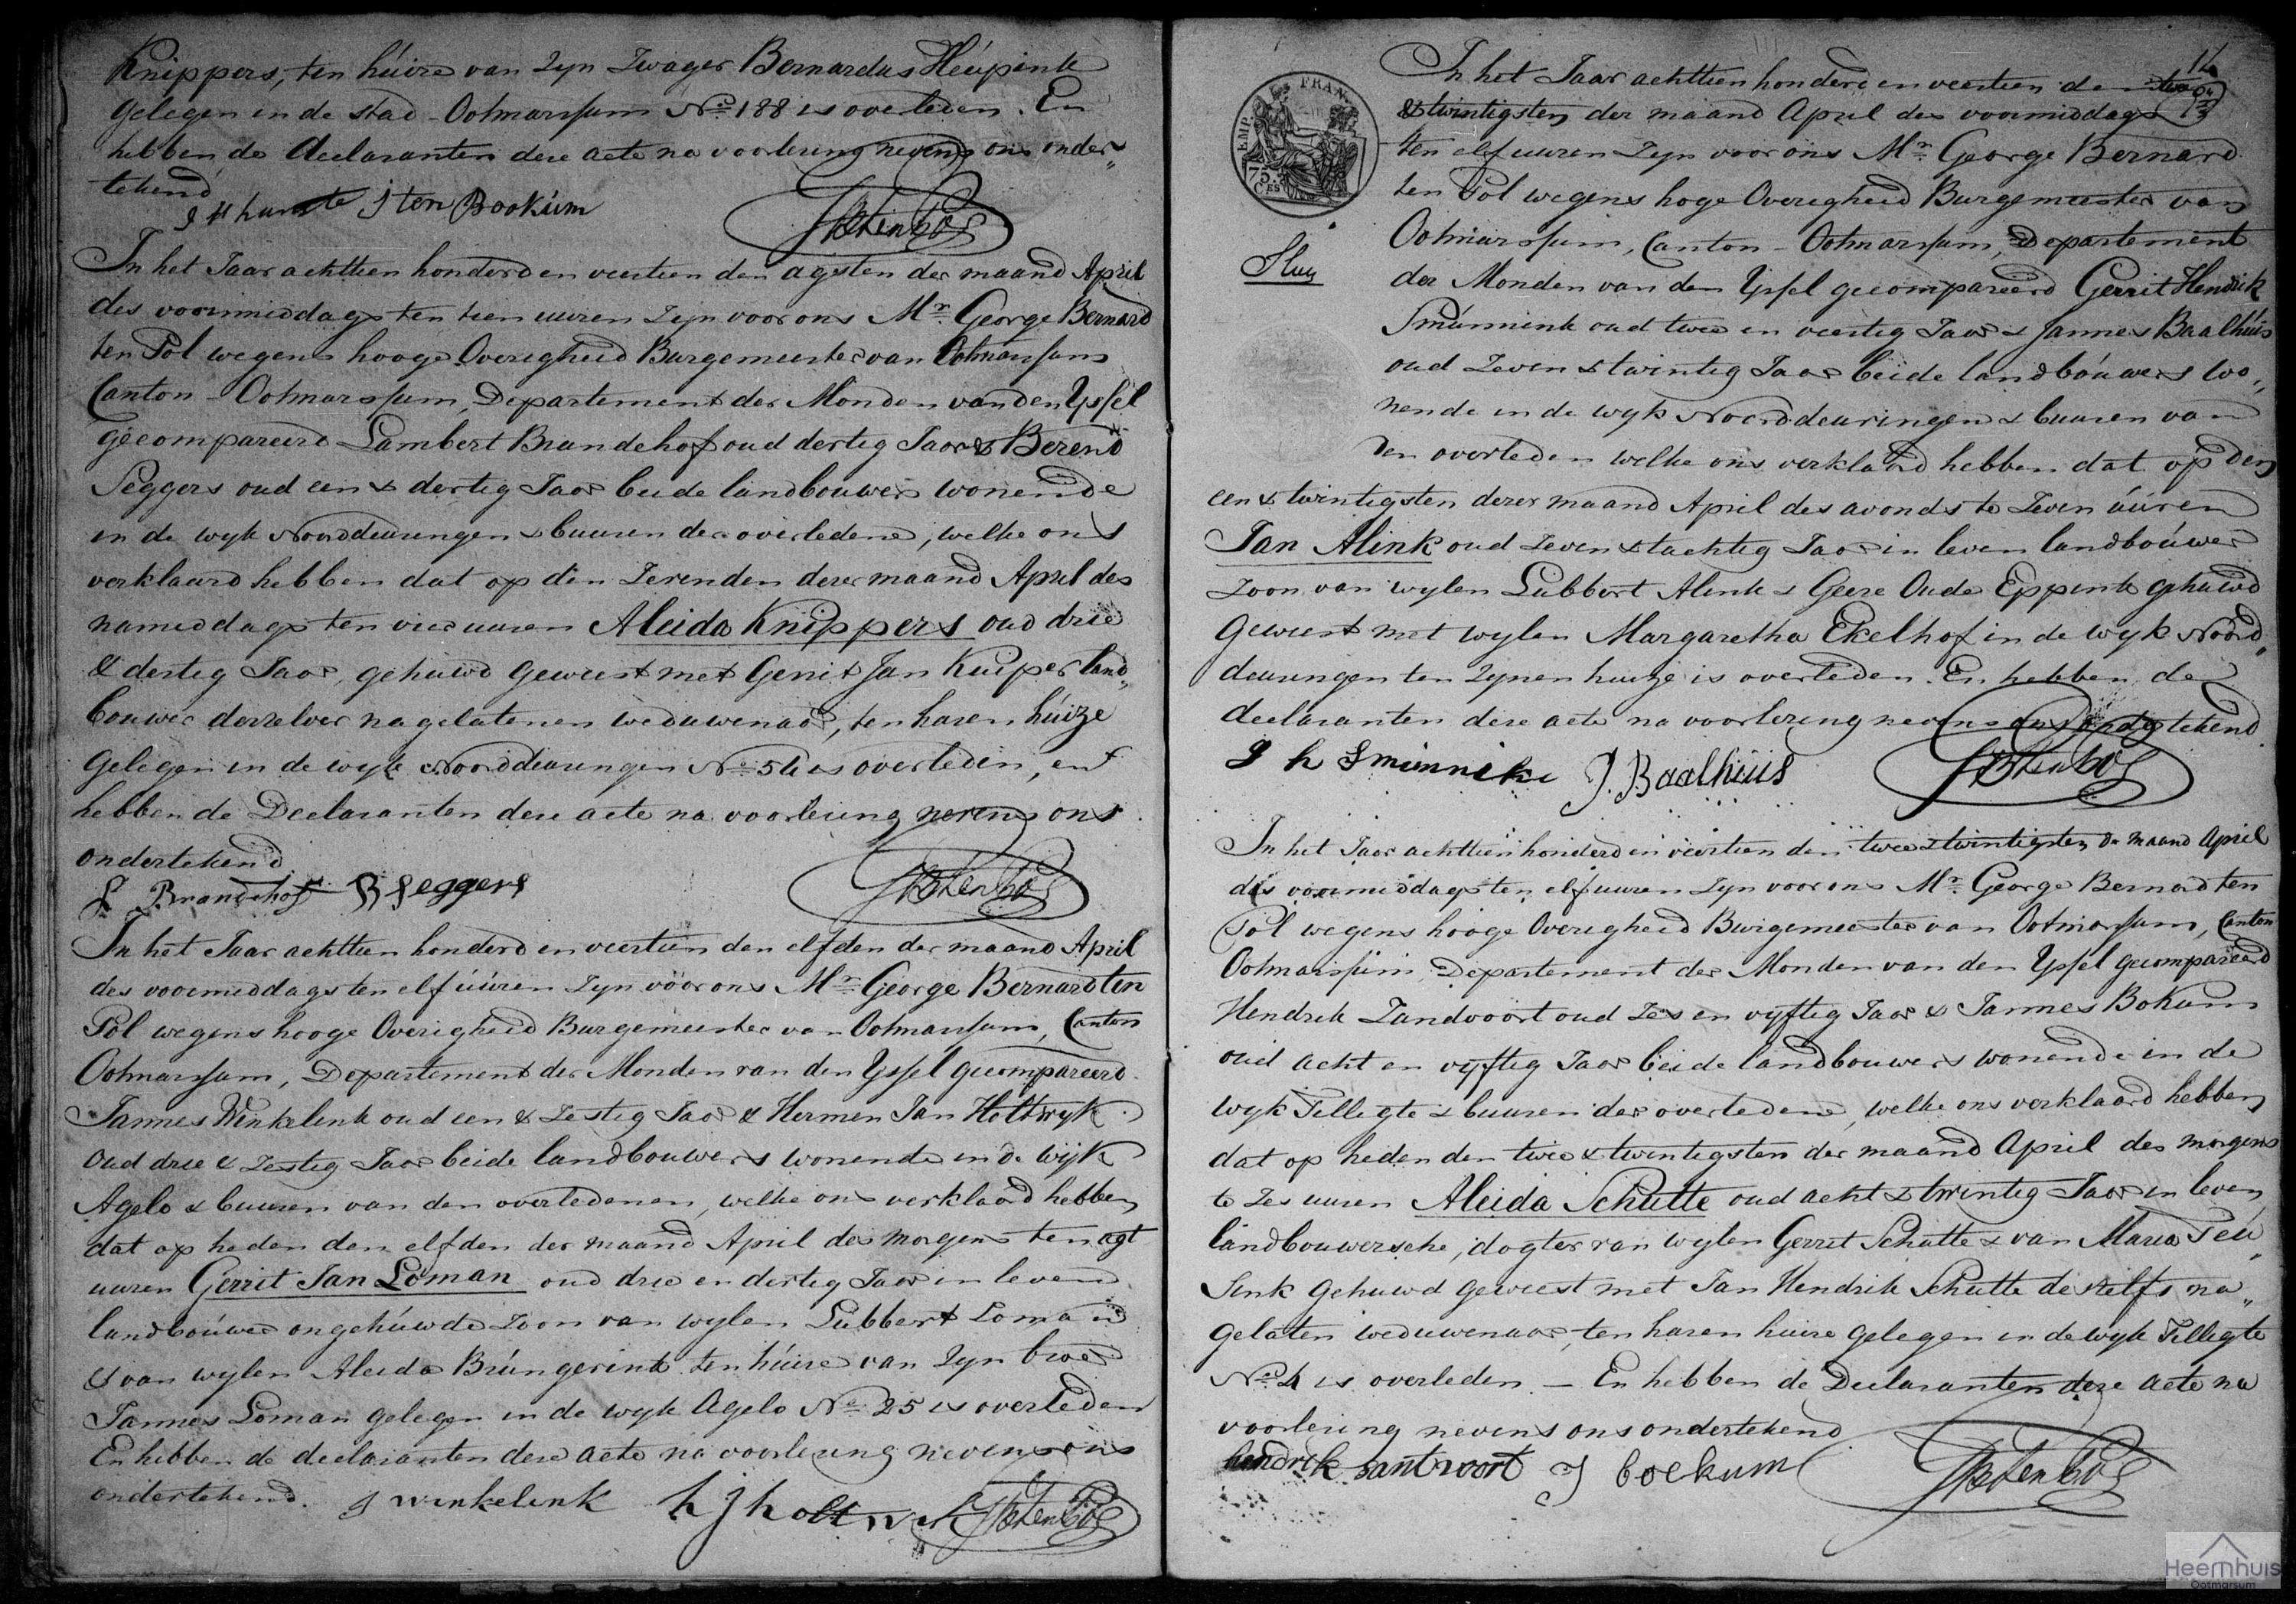 Knippers, ten húire van Zyn Zwager Bernardus Heupink
gelegen in de stad Ootmarssum No 188 is overleden. En
hebben de declaranten dese acte na voorlezing nevens ons onder„
tekend
J ten Bookúm
In het Jaar achttien honderd en veertien den agsten der maand April
des voormiddags ten tien uuren Zyn voor ons Mr George Bernard
ten Pol wegens hooge Overigheid Burgemeester van Ootmarssum
Canton Ootmarssum, Departement der Monden van den Yssel
gecompareerd Lambert Brandehof oud dertig Jaar & Berend
Seggers oud een & dertig Jaar beide landbouwers wonende
in de wyk Noorddeurungen & buuren der overledene, welke ons
verklaard hebben dat op den Zevenden dezer maand April des
namiddags ten vier uuren Aleida Knippers oud drie
& dertig Jaar, gehuwd geweest met Gerrit Jan Kuiper land„
bouwer derzelver nagelatenen weduwenaar, ten haren húize
gelegen in de wyk Noorddeurungen No 56 is overleden, en
hebben de Declaranten dese acte na voorlezing nevens ons
ondertekend
L Brandehof B Seggers
In het Jaar achttien honderd en veertien den elfden der maand April
des voormiddags ten elf úúren Zyn voor ons Mr George Bernard ten
Pol wegens hooge Overigheid Burgemeester van Ootmarssum, Canton
Ootmarssum, Departement der Monden van den Yssel gecompareerd
Jannes Winkelink oud een & Zestig Jaar & Hermen Jan Holtwyk
oud drie & Zestig Jaar beide landbouwers wonende in de wijk
Agelo & buuren van den overledenen, welke ons verklaard hebben
dat op heden den elfden der maand April des morgens ten agt
uuren Gerrit Jan Loman oud drie en dertig Jaar in leven
landboúwer ongehúwde Zoon van wylen Lubbert Loman
& van wylen Aleida Brúngerink ten húire van Zyn broer
Jannes Loman gelegen in de wyk Agelo No 25 is overleden
En hebben de declaranten dese acte na voorlezing nevens ons
ondertekend.
J winkelink h j holtwik
14
In het Jaar achttien honderd en veertien den twe
& twintigsten der maand April des voormiddags
ten elf uuren Zyn voor ons Mr George Bernard
ten Pol wegens hoge Overigheid Burgemeester van
Ootmarssum, Canton Ootmarssum, Departement
der Monden van den Yssel gecompareerd Gerrit Hendrik
Smúnnink oud twee en veertig Jaar & Jannes Baalhúis
oud Zeven & twintig Jaar beide landboúwers wo„
nende in de wyk Noorddeuringen & buuren van
den overleden welke ons verklaard hebben dat op den
een & twintigsten dezer maand April des avonds te Zeven úúren
Jan Alink oud Zeven & tachtig Jaar in leven landboúwer
Zoon van wylen Lubbert Alink & Geere Oude Eppink gehuwd
geweest met wylen Margaretha Ekelhof in de wyk Noord„
deurungen ten Zynen huize is overleden. En hebben de
declaranten dese acte na voorlezing nevens ons ondertekend
EMP. FRAN.
75.
CES
g h Smúnnink J. Baalhúis
In het Jaar achttien honderd en veertien den twee & twintigsten de maand April
des voormiddags ten elf uuren Zyn voor ons Mr George Bernard ten
Pol wegens hooge Overigheid Burgemeester van Ootmarssum, Canton
Ootmarssúm, Departement der Monden van den Yssel gecompareerd
Hendrik Zandvoort oud Zes en vyftig Jaar & Jannes Bokum
oud acht en vyftig Jaar beide landbouwers wonende in de
wyk Tilligte & buuren der overledene, welke ons verklaard hebben
dat op heden den twee & twintigsten der maand April des morgens
te Zes uuren Aleida Schutte oud acht & twintig Jaar in leven
landbouwersche, dogter van wylen Gerrit Schutte & van Maria Peu„
sink gehuwd geweest met Jan Hendrik Schutte deszelfs na„
gelaten weduwenaar, ten haren huire gelegen in de wyk Tilligte
No 4 is overleden. — En hebben de Declaranten deze acte na
voorlezing nevens ons ondertekend
hendrik santvoort J boekum
Heemhuis
Ootmarsum